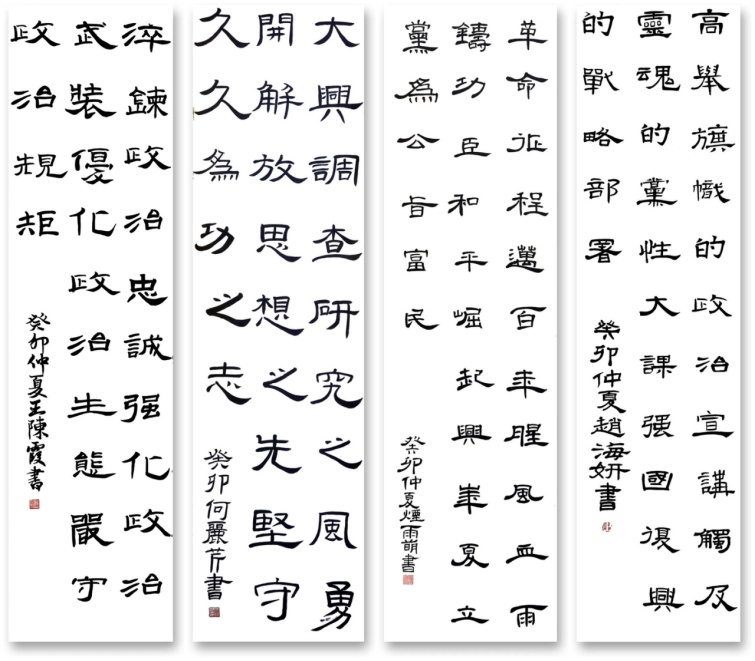 高舉旗幟的政治宣講觸及
靈魂的黨性大課强國復興
的戰略部署
癸卯仲夏趙海妍書
革命征程邁百年腥風血雨
鑄功臣和平崛起興華夏立
黨為公旨富民
癸卯仲夏煙雨萌書
大興調查研究之風勇
開解放思想之先堅守
久久為功之志
癸卯何麗芹書
淬鍊政治忠誠强化政治
武裝優化政治生態嚴守
政治規矩
癸卯仲夏王陳霞書